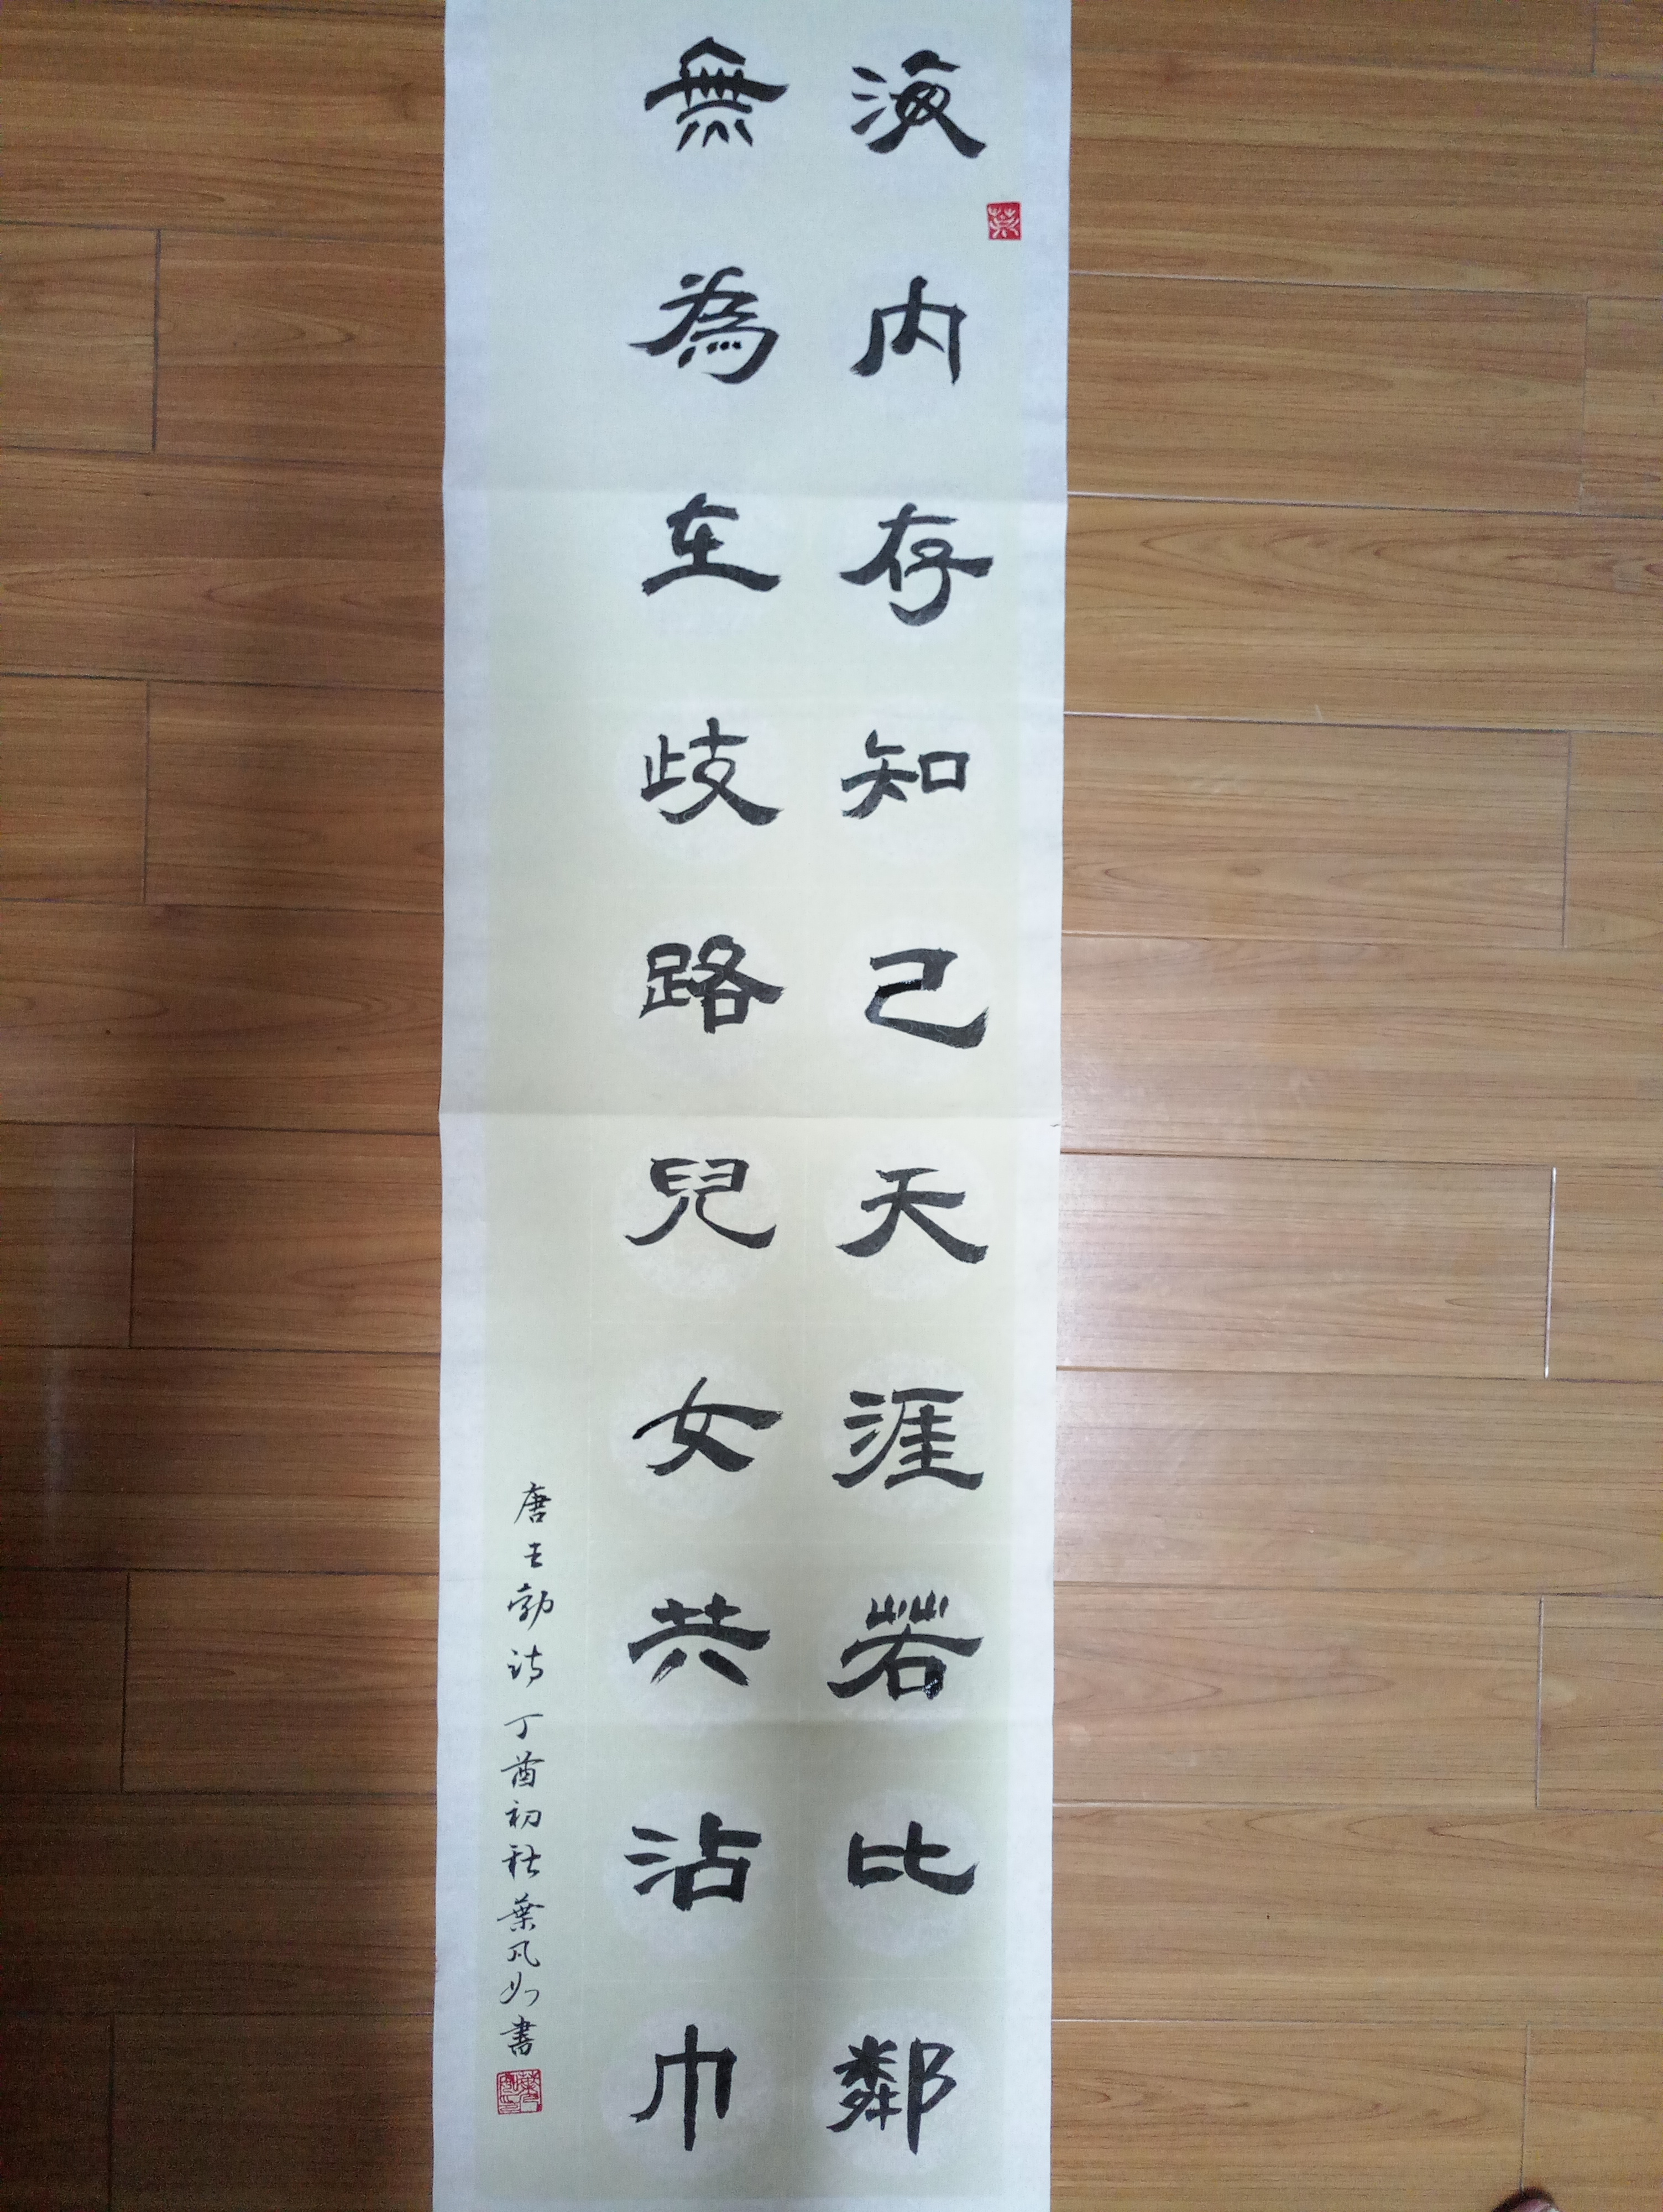 海内存知己天涯若比鄰
無為在歧路兒女共沾巾
唐王勃詩丁酉初秋葉凡如書